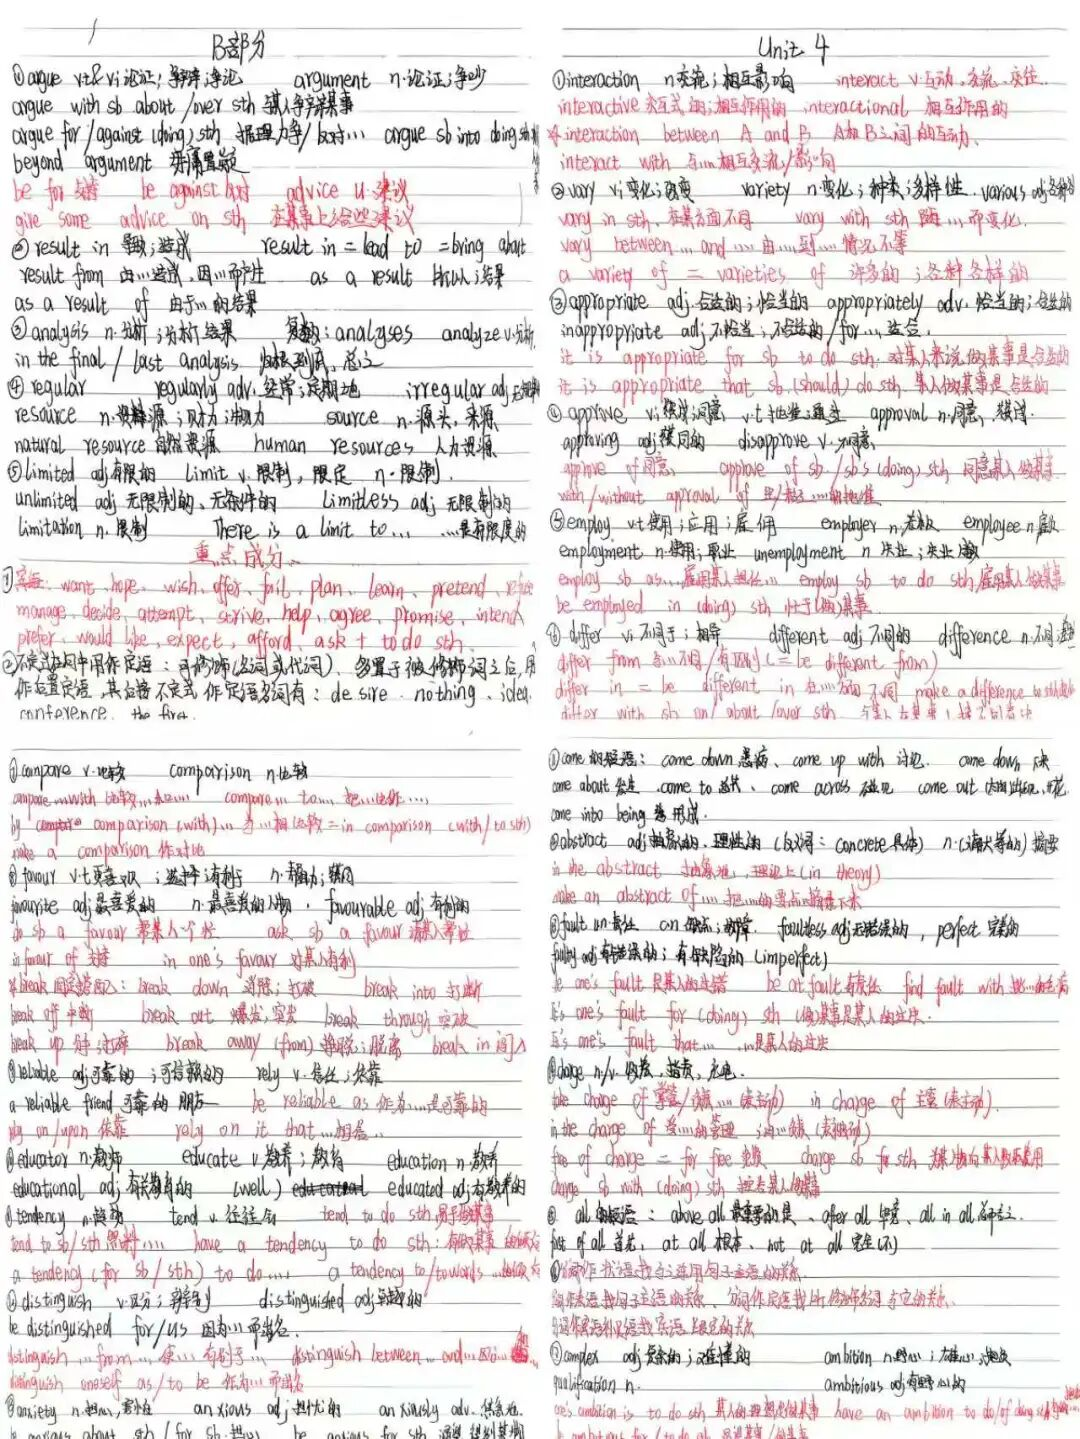 B部分
①argue vt&vi 论证；争辩 争论 argument n.论证；争吵
argue with sb about/over sth 与某人争辩某事
argue for/against (doing) sth 据理力争/反对… argue sb into doing sth
beyond argument 毋庸置疑
be for 支持 be against 反对 advice u.建议
give some advice on sth 在某事上给些建议
②result in 导致；造成 result in = lead to = bring about
result from 由…造成，因…而产生 as a result 所以；结果
as a result of 由于…的结果
③analysis n.分析；分析结果 复数：analyses analyze v.分析
in the final/last analysis 归根到底，总之
④regular regularly adv.经常；定期地 irregular adj.
resource n.资源；财力；物力 source n.源头，来源
natural resource 自然资源 human resources 人力资源
⑤limited adj.有限的 limit v.限制，限定 n.限制.
unlimited adj 无限制的、无条件的 limitless adj 无限制的
limitation n.限制 There is a limit to… …是有限度的
重点成分
①宾语：want、hope、wish、offer、fail、plan、learn、pretend、
manage、decide、attempt、strive、help、agree、promise、intend
prefer、would like、expect、afford、ask + to do sth.
②不定式在句中用作定语：可修饰(名词或代词)，多置于被修饰词之后，用
作后置定语，其后接不定式作定语名词有：desire、nothing、idea
conference、the first
Unit 4
①interaction n交流；相互影响 interact v互动、交流、交往
interactive 交互式的；相互作用的 interactional 相互作用的
interaction between A and B A和B之间的互动、
interact with 与…相互交流/影响
②vary vi变化；改变 variety n.变化；种类；多样性 various adj
vary in sth. 在某方面不同 vary with sth 随…而变化
vary between…and… 由…到…情况不等
a variety of = varieties of 许多的；各种各样的
③appropriate adj.合适的；恰当的 appropriately adv.恰当的；合适的
inappropriate adj;不恰当；不合适的/for…适合.
it is appropriate for sb to do sth.对某人来说做某事是合适的
it is appropriate that sb (should) do sth 某人做某事是合适的
④approve vi赞成；同意 v.t批准；通过 approval n.同意、赞成.
approving adj赞同的 disapprove v.不同意
approve of 同意 approve of sb/sb's (doing) sth 同意某人做某事
with/without approval of
⑤employ vt使用；应用；雇佣 employer n.老板 employee n雇员
employment n.使用；职业 unemployment n 失业；失业人数
employ sb as…雇用某人担任… employ sb to do sth,雇用某人做某事
be employed in (doing) sth 忙于(做)某事
⑥differ vi不同于；相异 different adj不同的 difference n.不同
differ from 与…不同/有区别 (= be different from)
differ in = be different in 在…方面不同 make a difference to sth
differ with sb on/about/over sth
①compare v.比较 comparison n比较
compare…with 比较…和… compare…to…把…比作…
by comparison (with)…与…相比较 = in comparison (with/to sth)
make a comparison 作对比
favour v.t更喜欢；选择；有利于 n.帮助；赞同
favourite adj最喜爱的 n.最喜爱的人物. favourable adj有利的
do sb a favour 帮某人个忙 ask sb a favour 请某人帮忙
in favour of 支持 in one's favour 对某人有利
break固定搭配：break down 消除；打破 break into 打断
break off 中断 break out 爆发，突发 break through 突破
break up break away (from) 摆脱；脱离 break in 闯入
reliable adj可靠的；可信赖的 rely v.信任；依靠
a reliable friend 可靠的朋友 be reliable as 作为…是可靠的
rely on/upon 依靠 rely on it that…相信…
educator n.教师 educate v教养；教育 education n教养
educational adj 有关教育的 (well) educated adj有教养的
tendency n.趋势 tend v.往往会 tend to do sth 易于做某事
tend to sb/sth 照料… have a tendency to do sth：
a tendency (for sb/sth) to do… a tendency to/towards
distinguish v.区分；辨别 distinguished adj卓越的
be distinguished for/as 因为…而著名
distinguish…from…使…有别于… distinguish between…and…
distinguish oneself as/to be 作为…而著名
anxiety n.担心，害怕 anxious adj.担忧的 anxiously adv.焦急地
be anxious about sth/for sb 担心 be anxious for sth
①come的短语：come down 患病、come up with 讨论. come down
come about 发生 come to 苏醒、come across 碰见 come out
come into being 形成.
②abstract adj抽象的、理性的 (反义词：concrete 具体) n. 摘要
in the abstract 抽象地，理论上 (in theory)
make an abstract of…把…的要点摘录下来
fault un.责任 cn 缺点；故障. faultless adj无错误的，perfect 完美的
faulty adj有错误的；有缺陷的 (imperfect)
be one's fault 是某人的过错 be at fault 有责任 find fault with
It's one's fault for (doing) sth 做某事是某人的过失.
It's one's fault that… …是某人的过失
charge n/v.收费，指责，充电.
take charge of 掌管/负责…(表主动) in charge of 主管(表主动).
in the charge of 受…的管理 (表被动)
free of charge = for free 免费 charge sb for sth
charge sb with (doing) sth 指责某人做某事
all的短语：above all 最重要的是、after all 毕竟、all in all 总而言之
first of all 首先、at all 根本、not at all 完全(不)
complex adj复杂的；难懂的 ambition n.野心；雄心；抱负
qualification n. ambitious adj有野心的
one's ambition is to do sth have an ambition to do/of doing sth
be ambitious for/to do sth